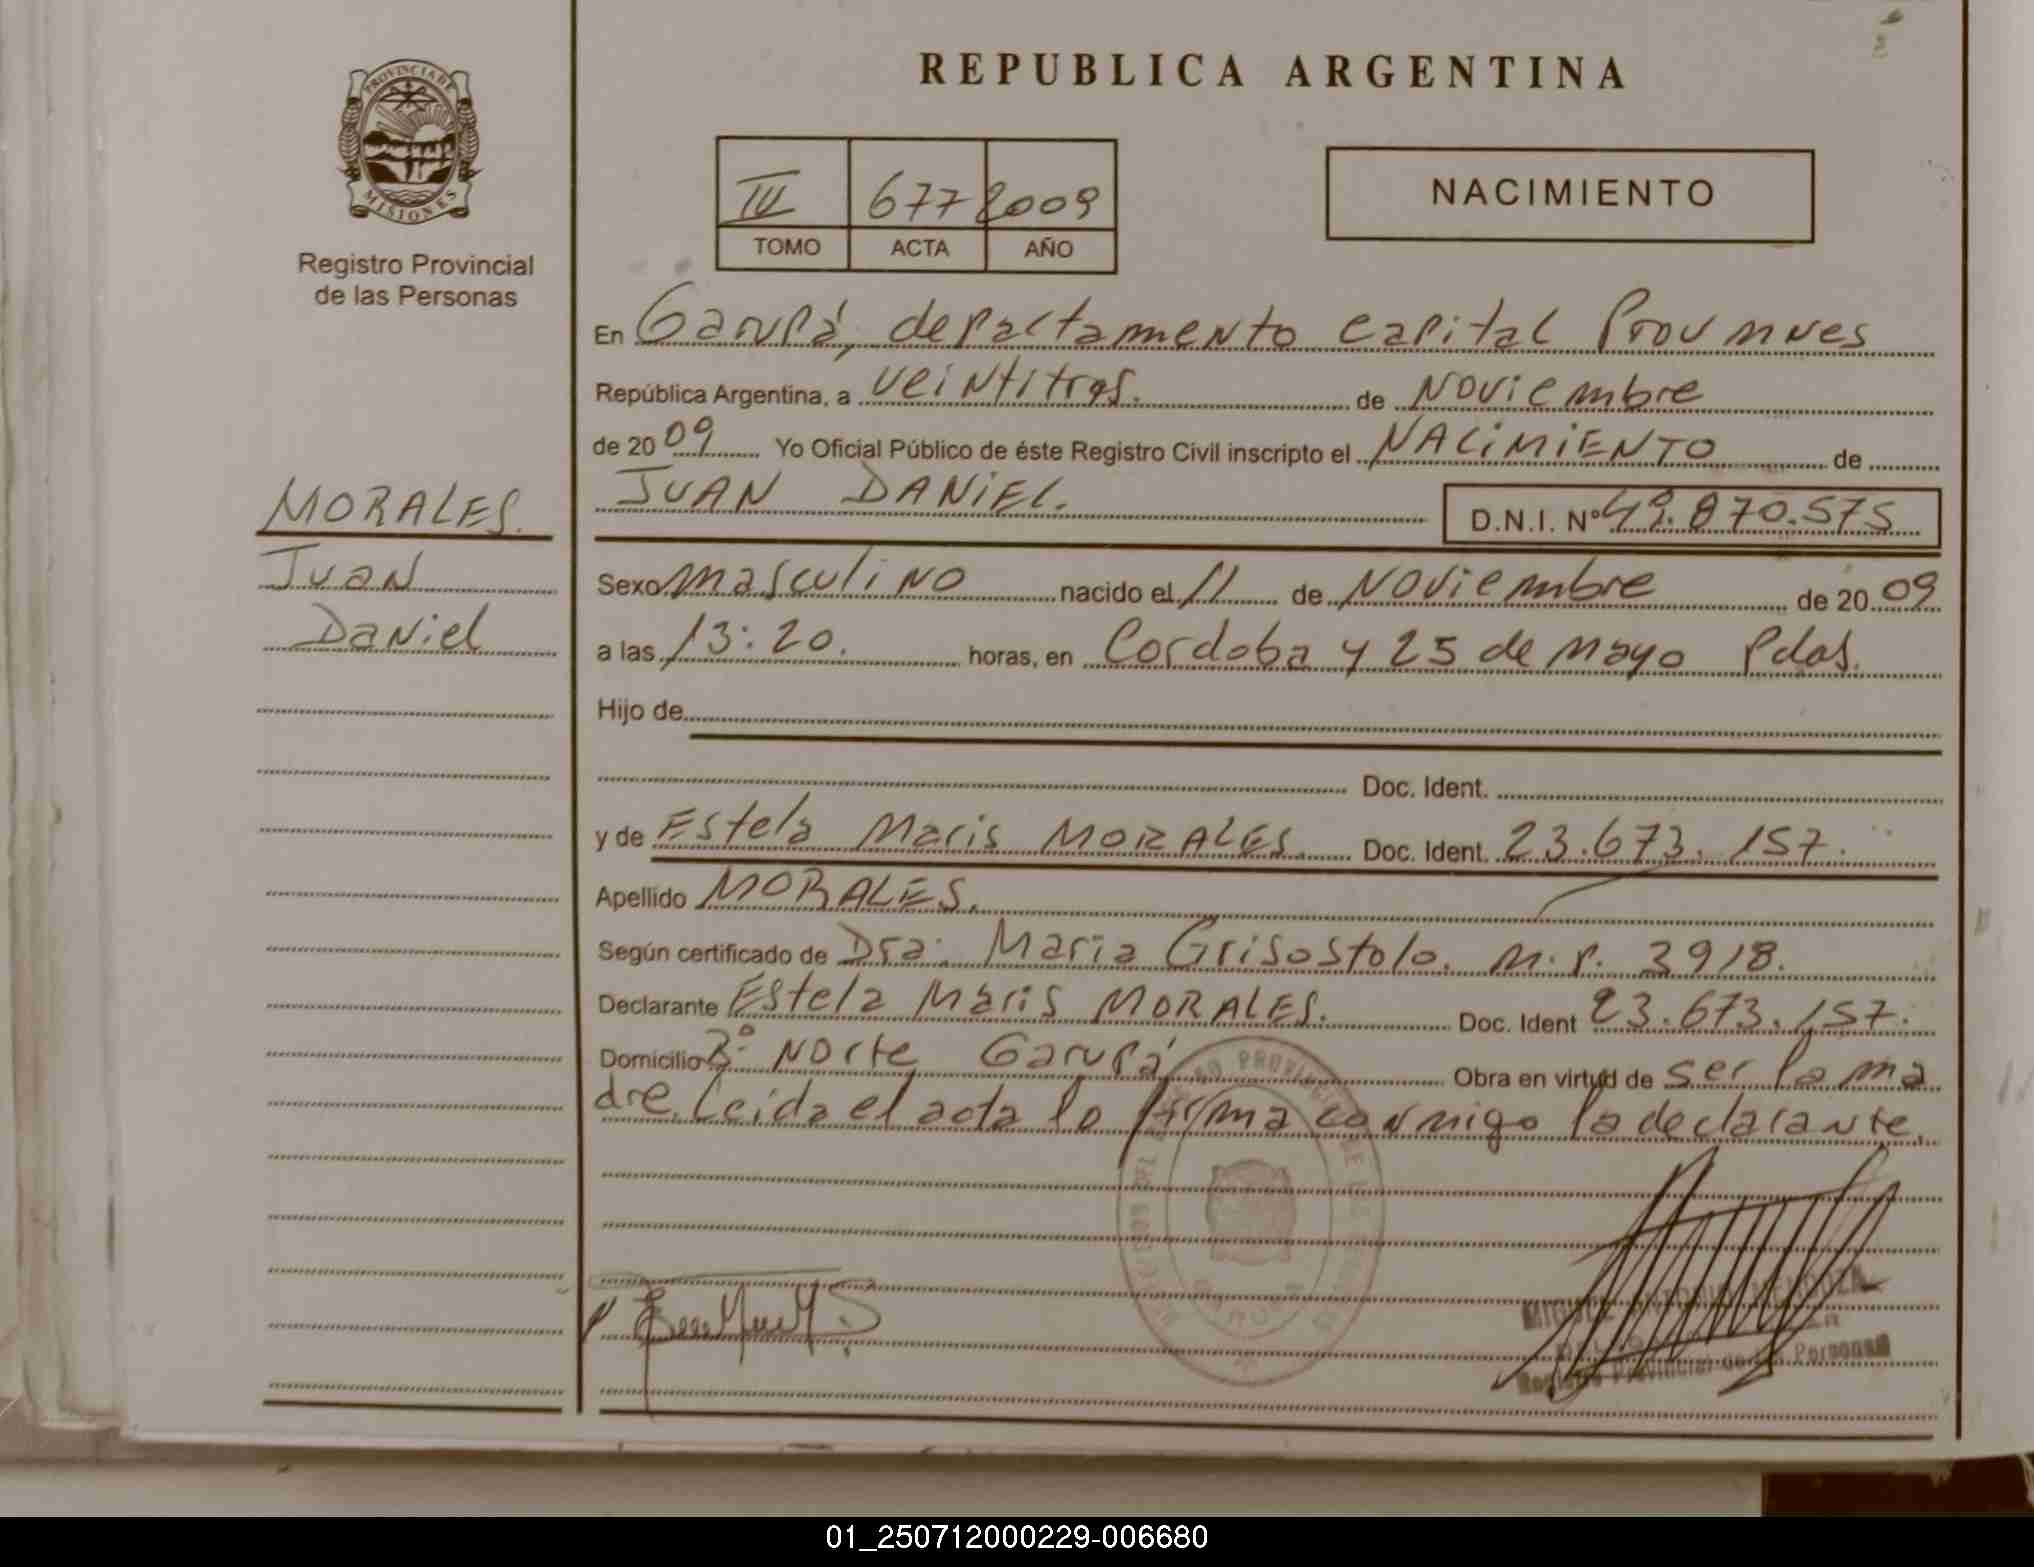 REPUBLICA ARGENTINA
PROVINCIA DE
MISIONES
Registro Provincial
de las Personas
III 677 2009
TOMO ACTA AÑO
NACIMIENTO
En Garupá, departamento capital Prov mnes
República Argentina, a veintitres. de Noviembre
de 2009 Yo Oficial Público de éste Registro Civil inscripto el NACIMIENTO de
JUAN DANIEL. D.N.I. Nº 49.870.575
MORALES.
Juan
Daniel
Sexo masculino nacido el 11 de Noviembre de 2009
a las 13:20. horas, en Cordoba y 25 de mayo Pdas.
Hijo de
Doc. Ident.
y de Estela Maris MORALES. Doc. Ident. 23.673.157.
Apellido MORALES.
Según certificado de Dra. Maria Grisostolo. m.p. 3918.
Declarante Estela Maris MORALES. Doc. Ident 23.673.157.
Domicilio Norte Garupá Obra en virtud de ser la ma
dre. Leida el acta lo firma conmigo la declarante.
MIGUEL ANTONIO MENDOZA
Registro Provincial de las Personas
01_250712000229-006680